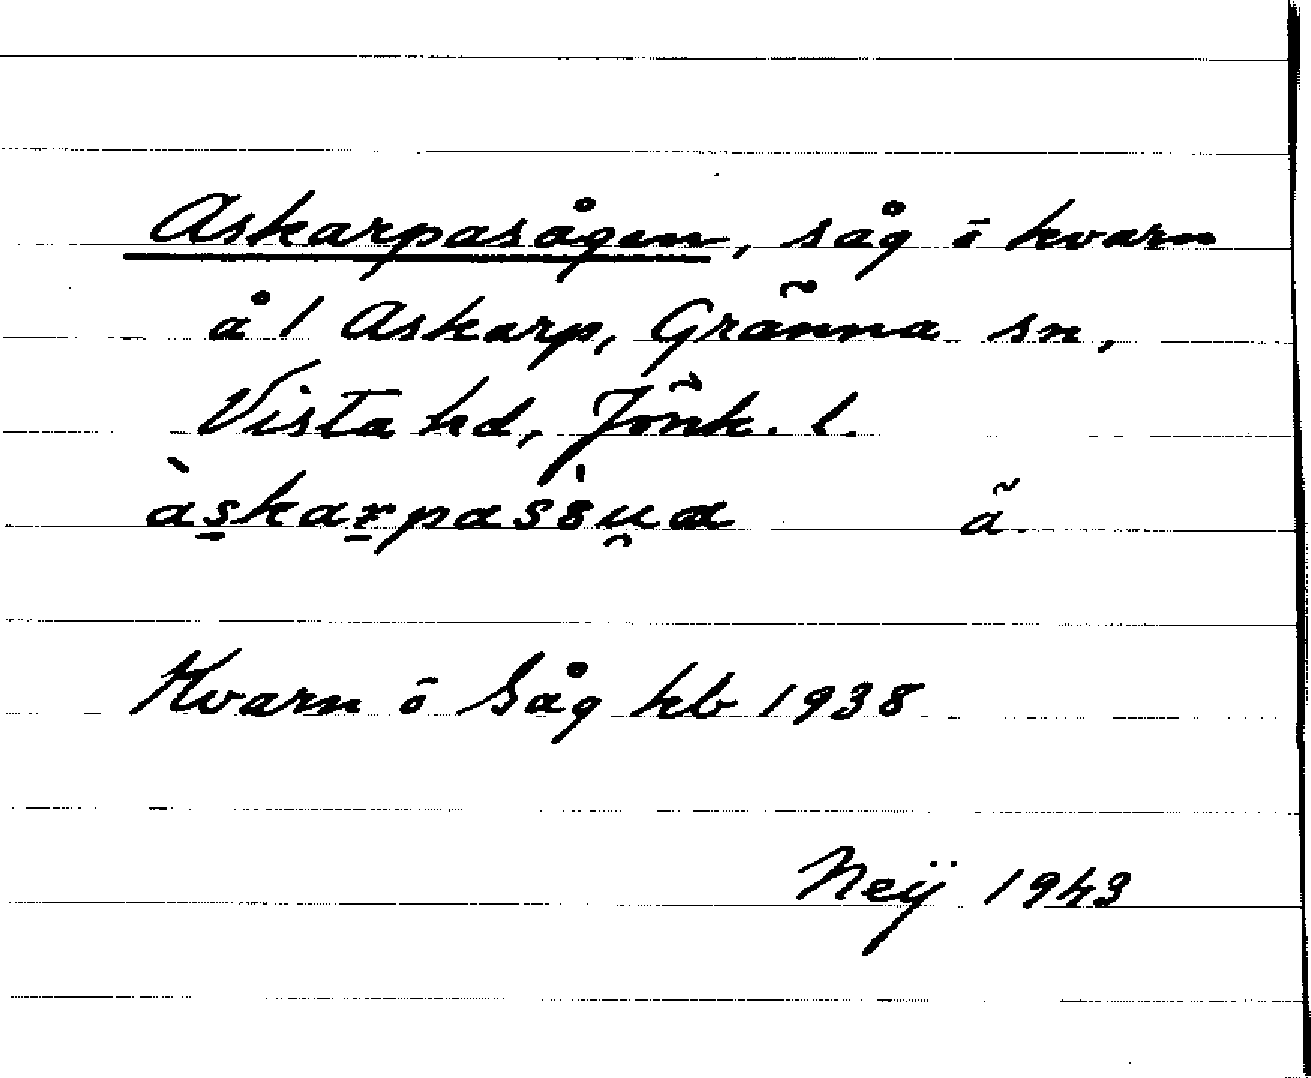 Askarpasågen, såg ō kvarn
å / Askarp, Gränna sn,
Vista hd, Jönk. l.
ã
Kvarn ō Såg kb 1938
Neÿ 1943